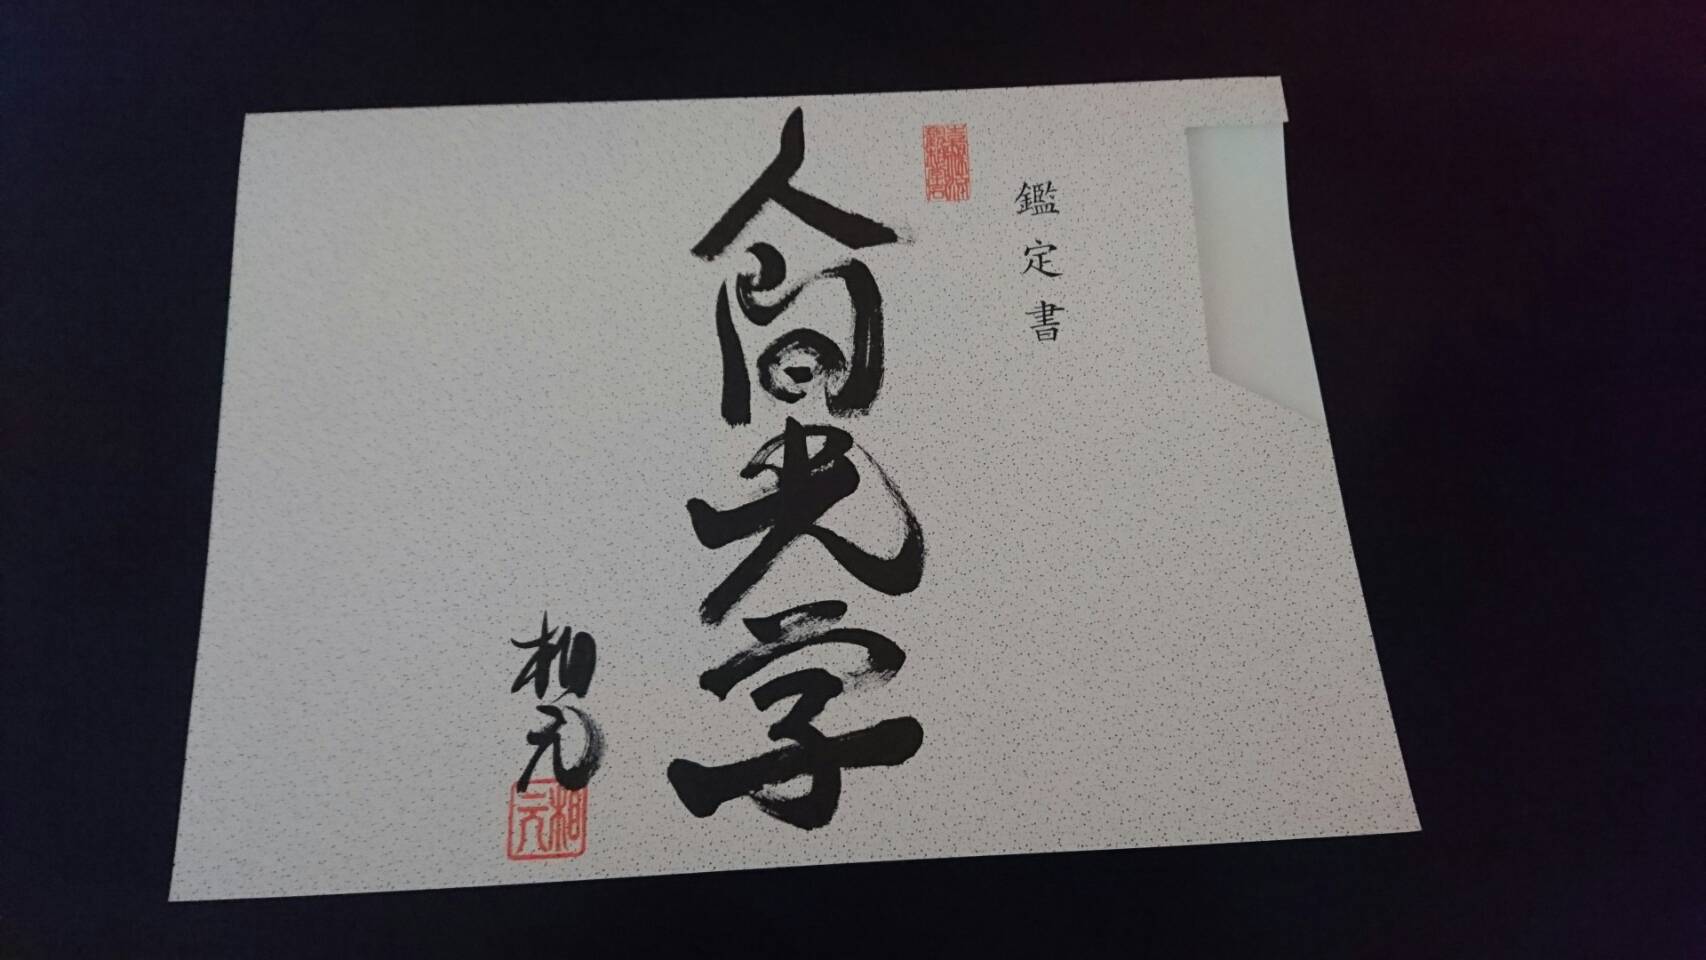 鑑定書
人間光学
相元
相元